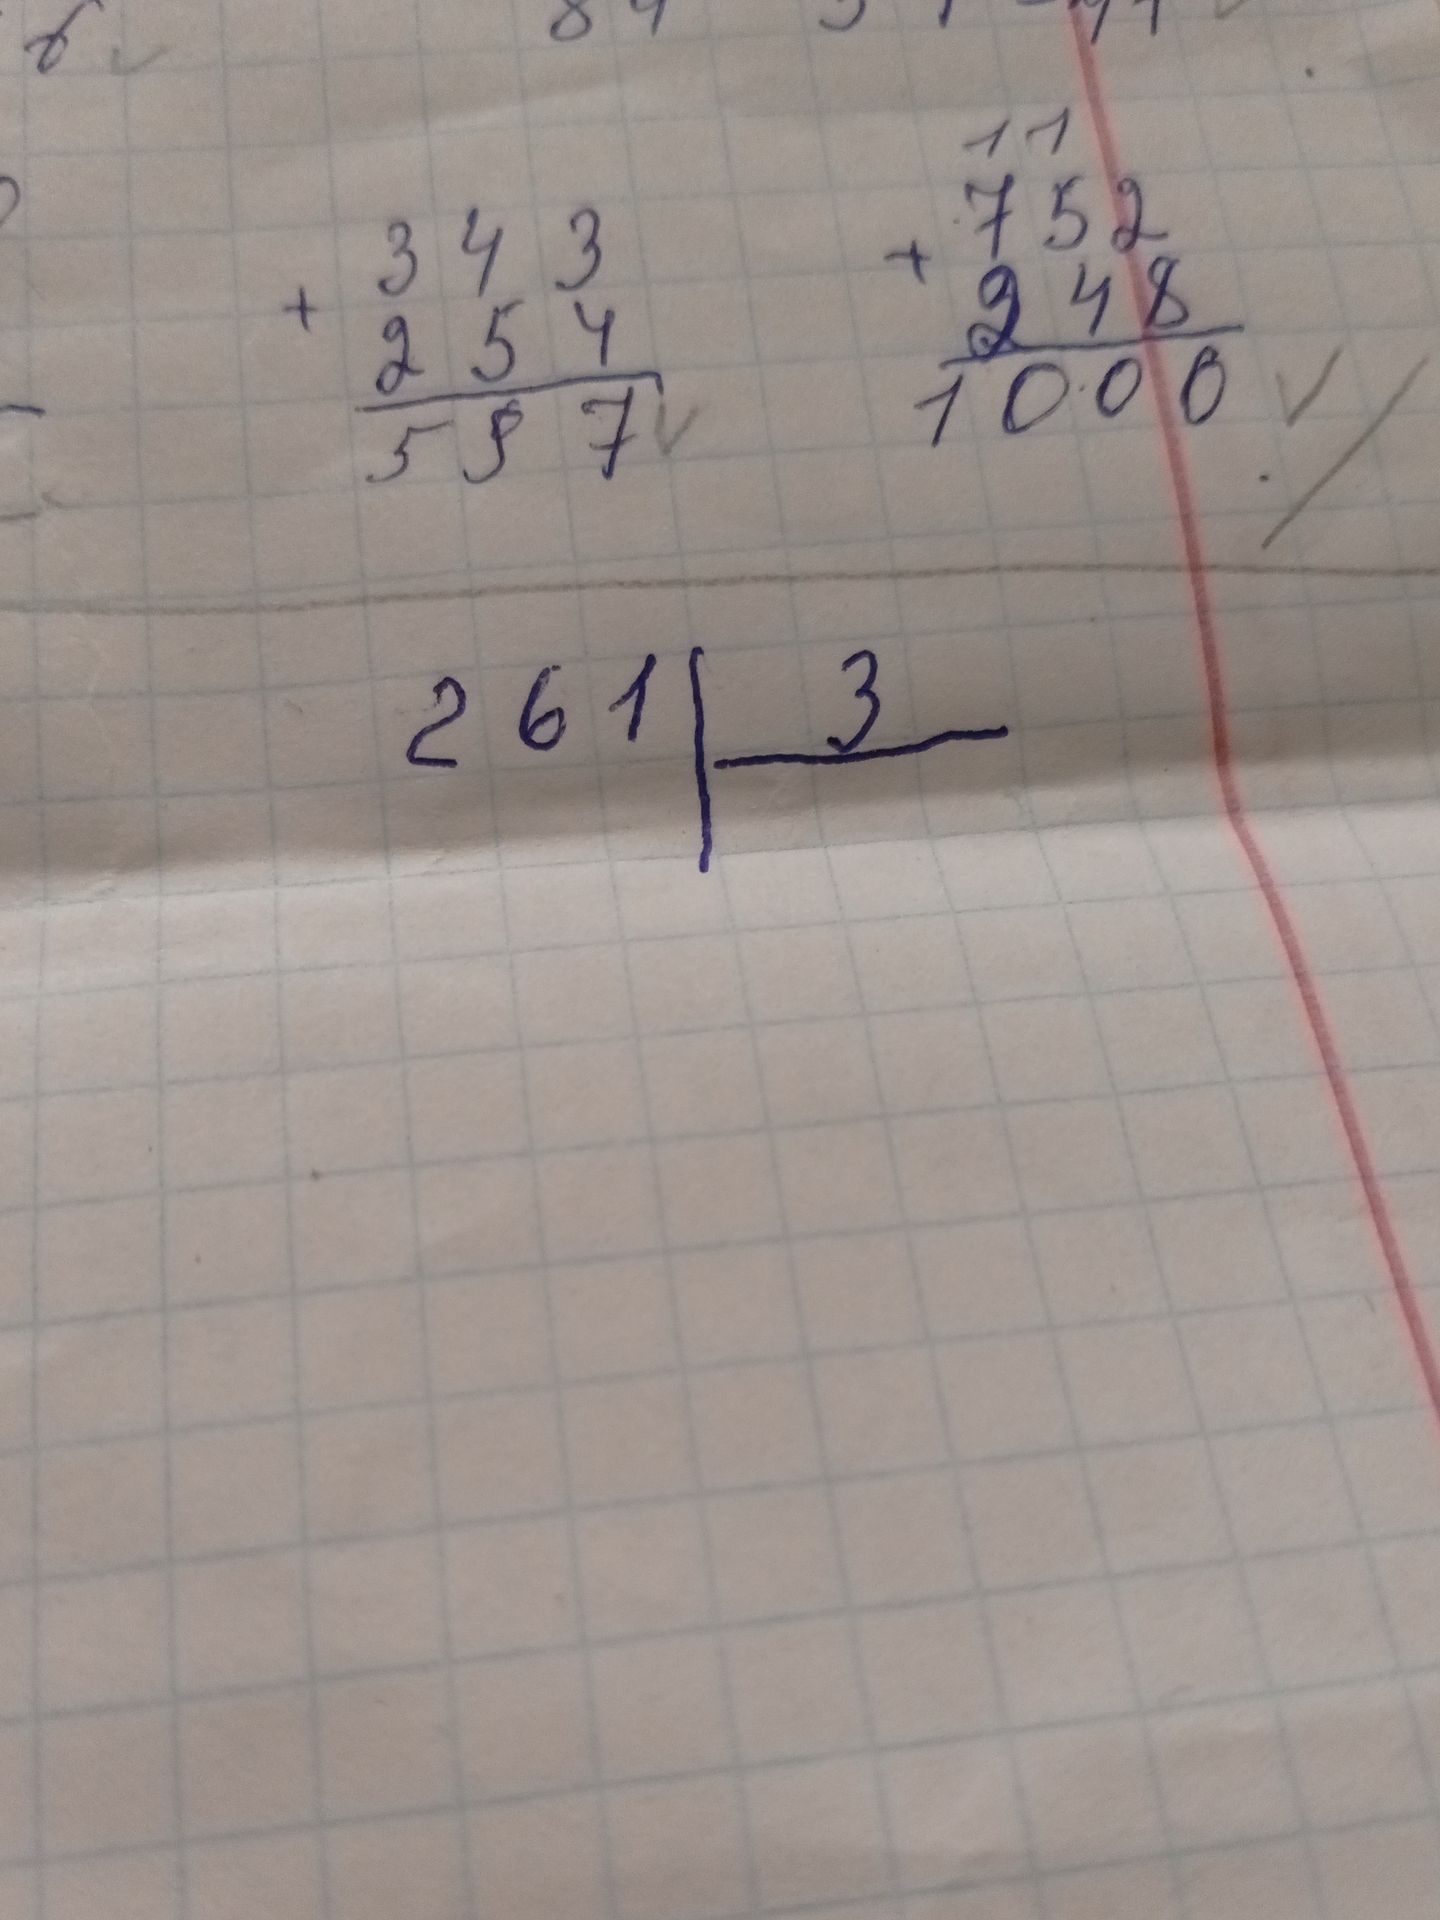 84
1 1
3 4 3
+
2 5 4
5 9 7
7 5 2
+
2 4 8
1 0 0 0
2 6 1 3